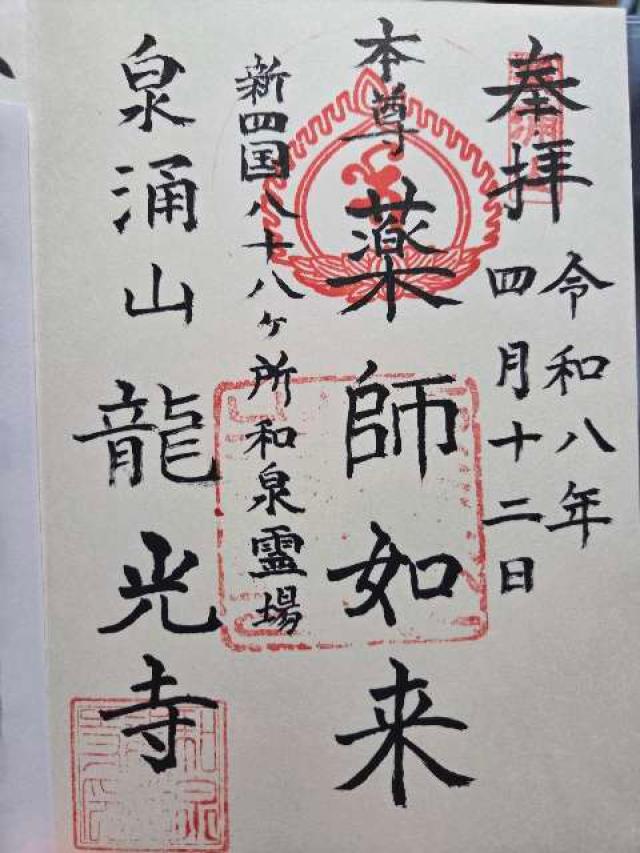 奉拝
令和八年
四月十二日
本尊 薬師如来
新四国八十八ヶ所和泉霊場
泉涌山 龍光寺